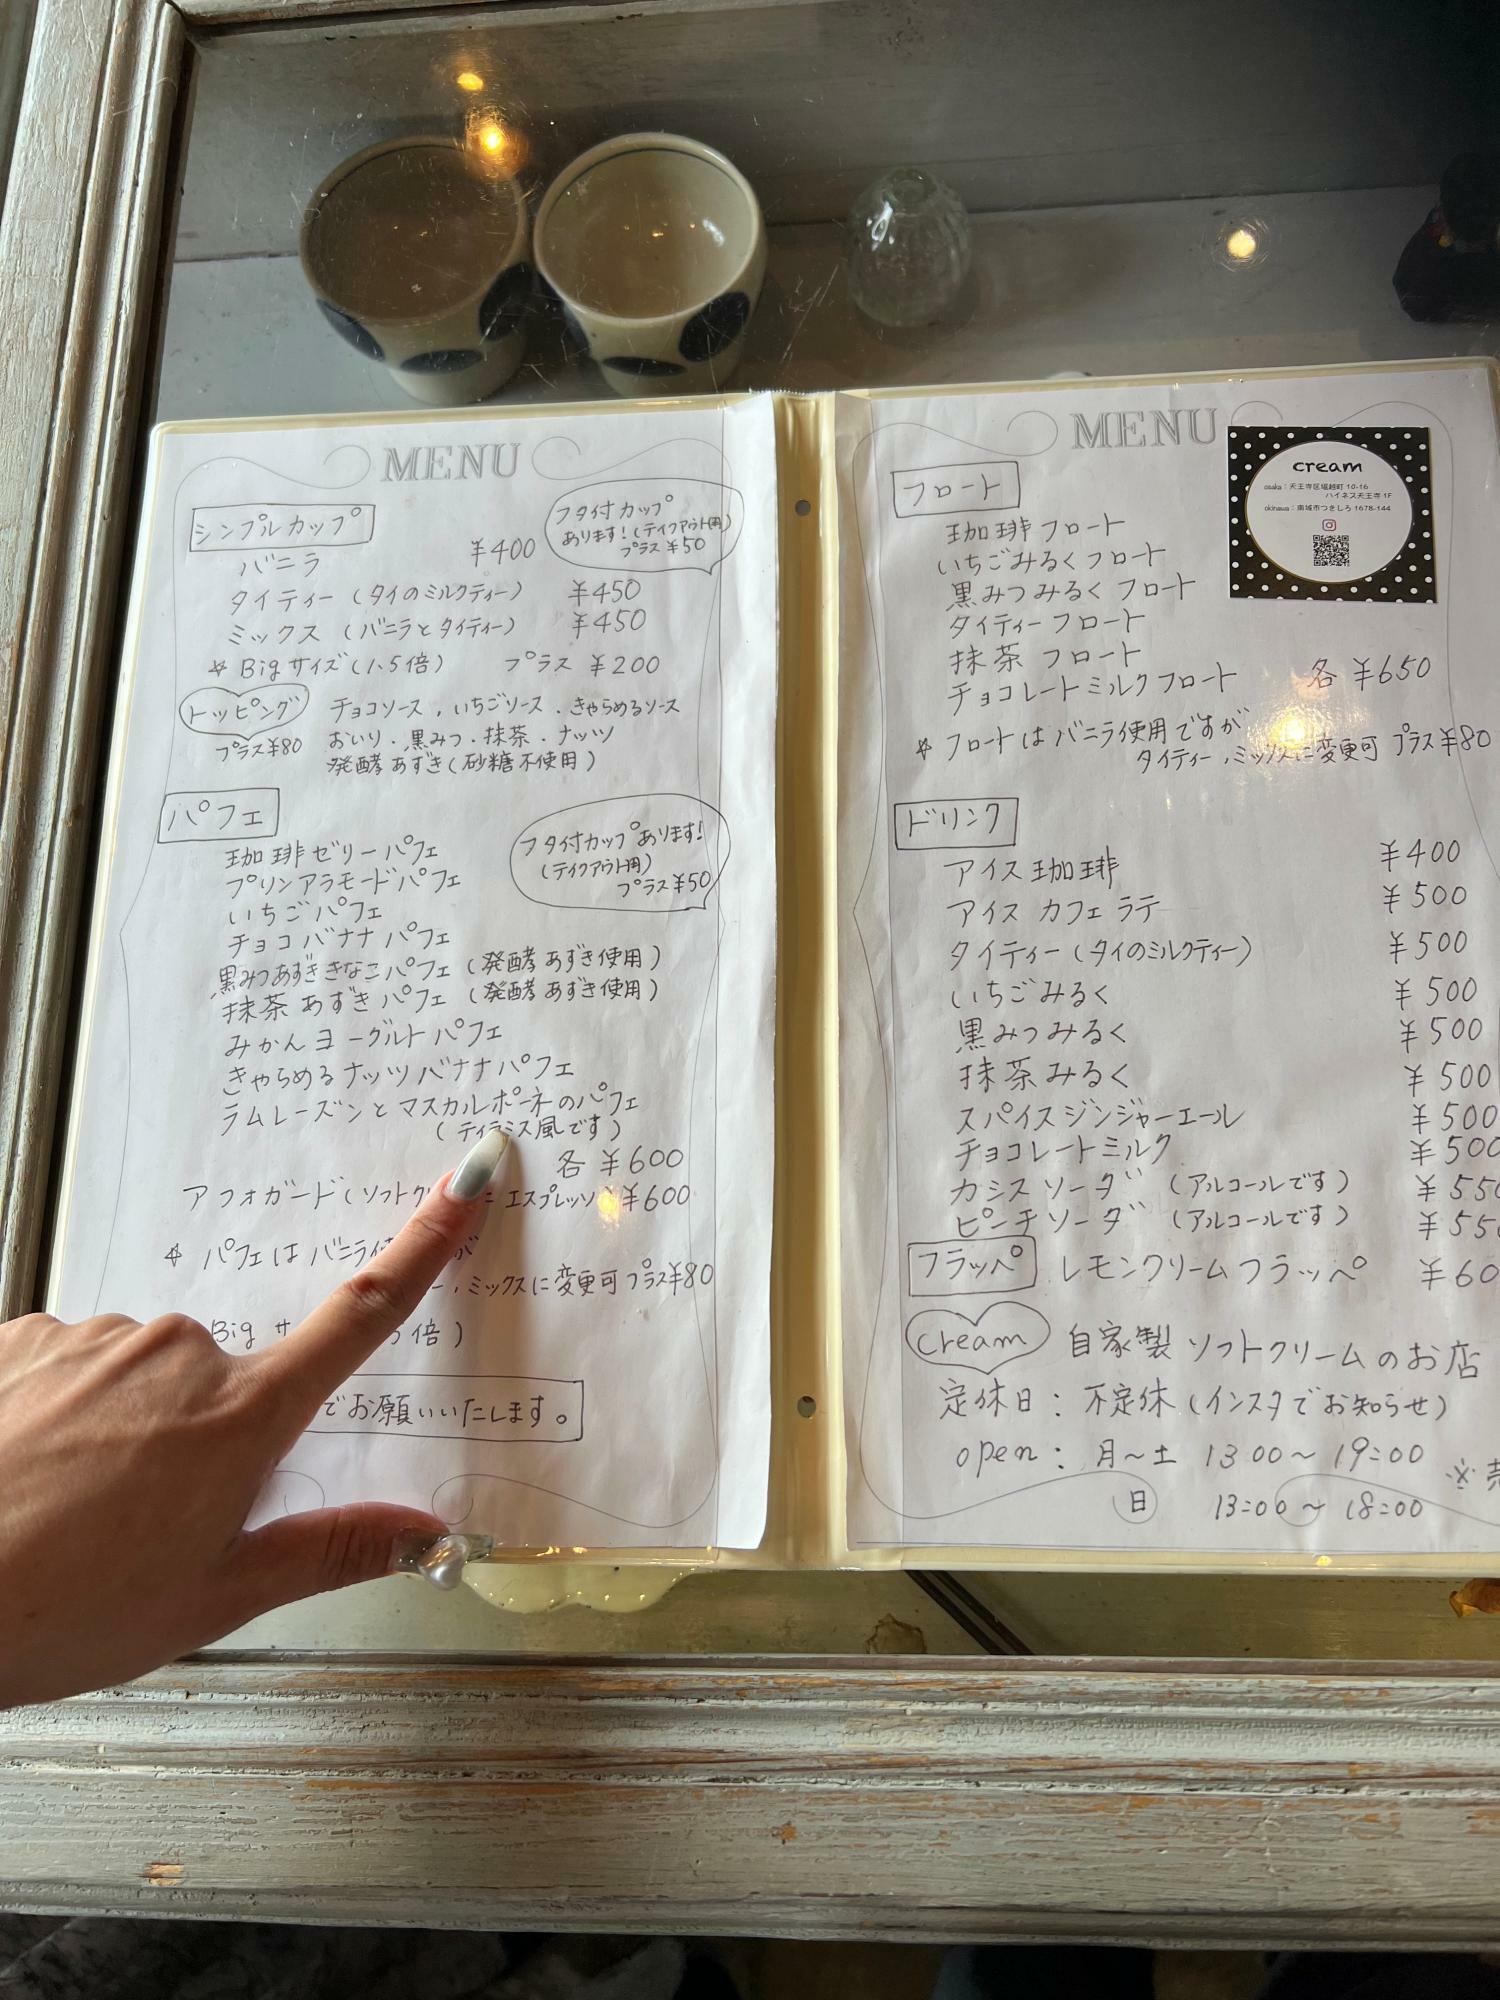 MENU
シンプルカップ
フタ付カップ
あります！(テイクアウト用)
プラス ¥50
バニラ ¥400
タイティー (タイのミルクティー) ¥450
ミックス (バニラとタイティー) ¥450
☆ Bigサイズ(1.5倍) プラス ¥200
トッピング チョコソース、いちごソース、きゃらめるソース
プラス¥80 おいり・黒みつ・抹茶・ナッツ
発酵あずき(砂糖不使用)
パフェ
フタ付カップあります!
(テイクアウト用)
プラス¥50
珈琲ゼリーパフェ
プリンアラモードパフェ
いちごパフェ
チョコバナナパフェ
黒みつあずききなこパフェ (発酵あずき使用)
抹茶あずきパフェ (発酵あずき使用)
みかんヨーグルトパフェ
きゃらめるナッツバナナパフェ
ラムレーズンとマスカルポーネのパフェ
(ティラミス風です)
各 ¥600
アフォガード(ソフトク エスプレッソ ¥600
☆ パフェはバニラ使 が
ー、ミックスに変更可 プラス¥80
Big サ 5倍)
でお願いいたします。
MENU
cream
osaka：天王寺区堀越町 10-16
ハイネス天王寺 1F
okinawa：南城市つきしろ 1678-144
フロート
珈琲フロート
いちごみるくフロート
黒みつみるくフロート
タイティーフロート
抹茶フロート
チョコレートミルクフロート 各 ¥650
☆ フロートはバニラ使用ですが
タイティー、ミックスに変更可 プラス¥80
ドリンク
アイス珈琲 ¥400
アイスカフェラテ ¥500
タイティー(タイのミルクティー) ¥500
いちごみるく ¥500
黒みつみるく ¥500
抹茶みるく ¥500
スパイスジンジャーエール ¥500
チョコレートミルク ¥500
カシスソーダ (アルコールです) ¥55
ピーチソーダ (アルコールです) ¥55
フラッペ レモンクリームフラッペ ¥60
cream 自家製ソフトクリームのお店
定休日：不定休(インスタでお知らせ)
open：月〜土 13:00〜19:00
日 13:00〜18:00